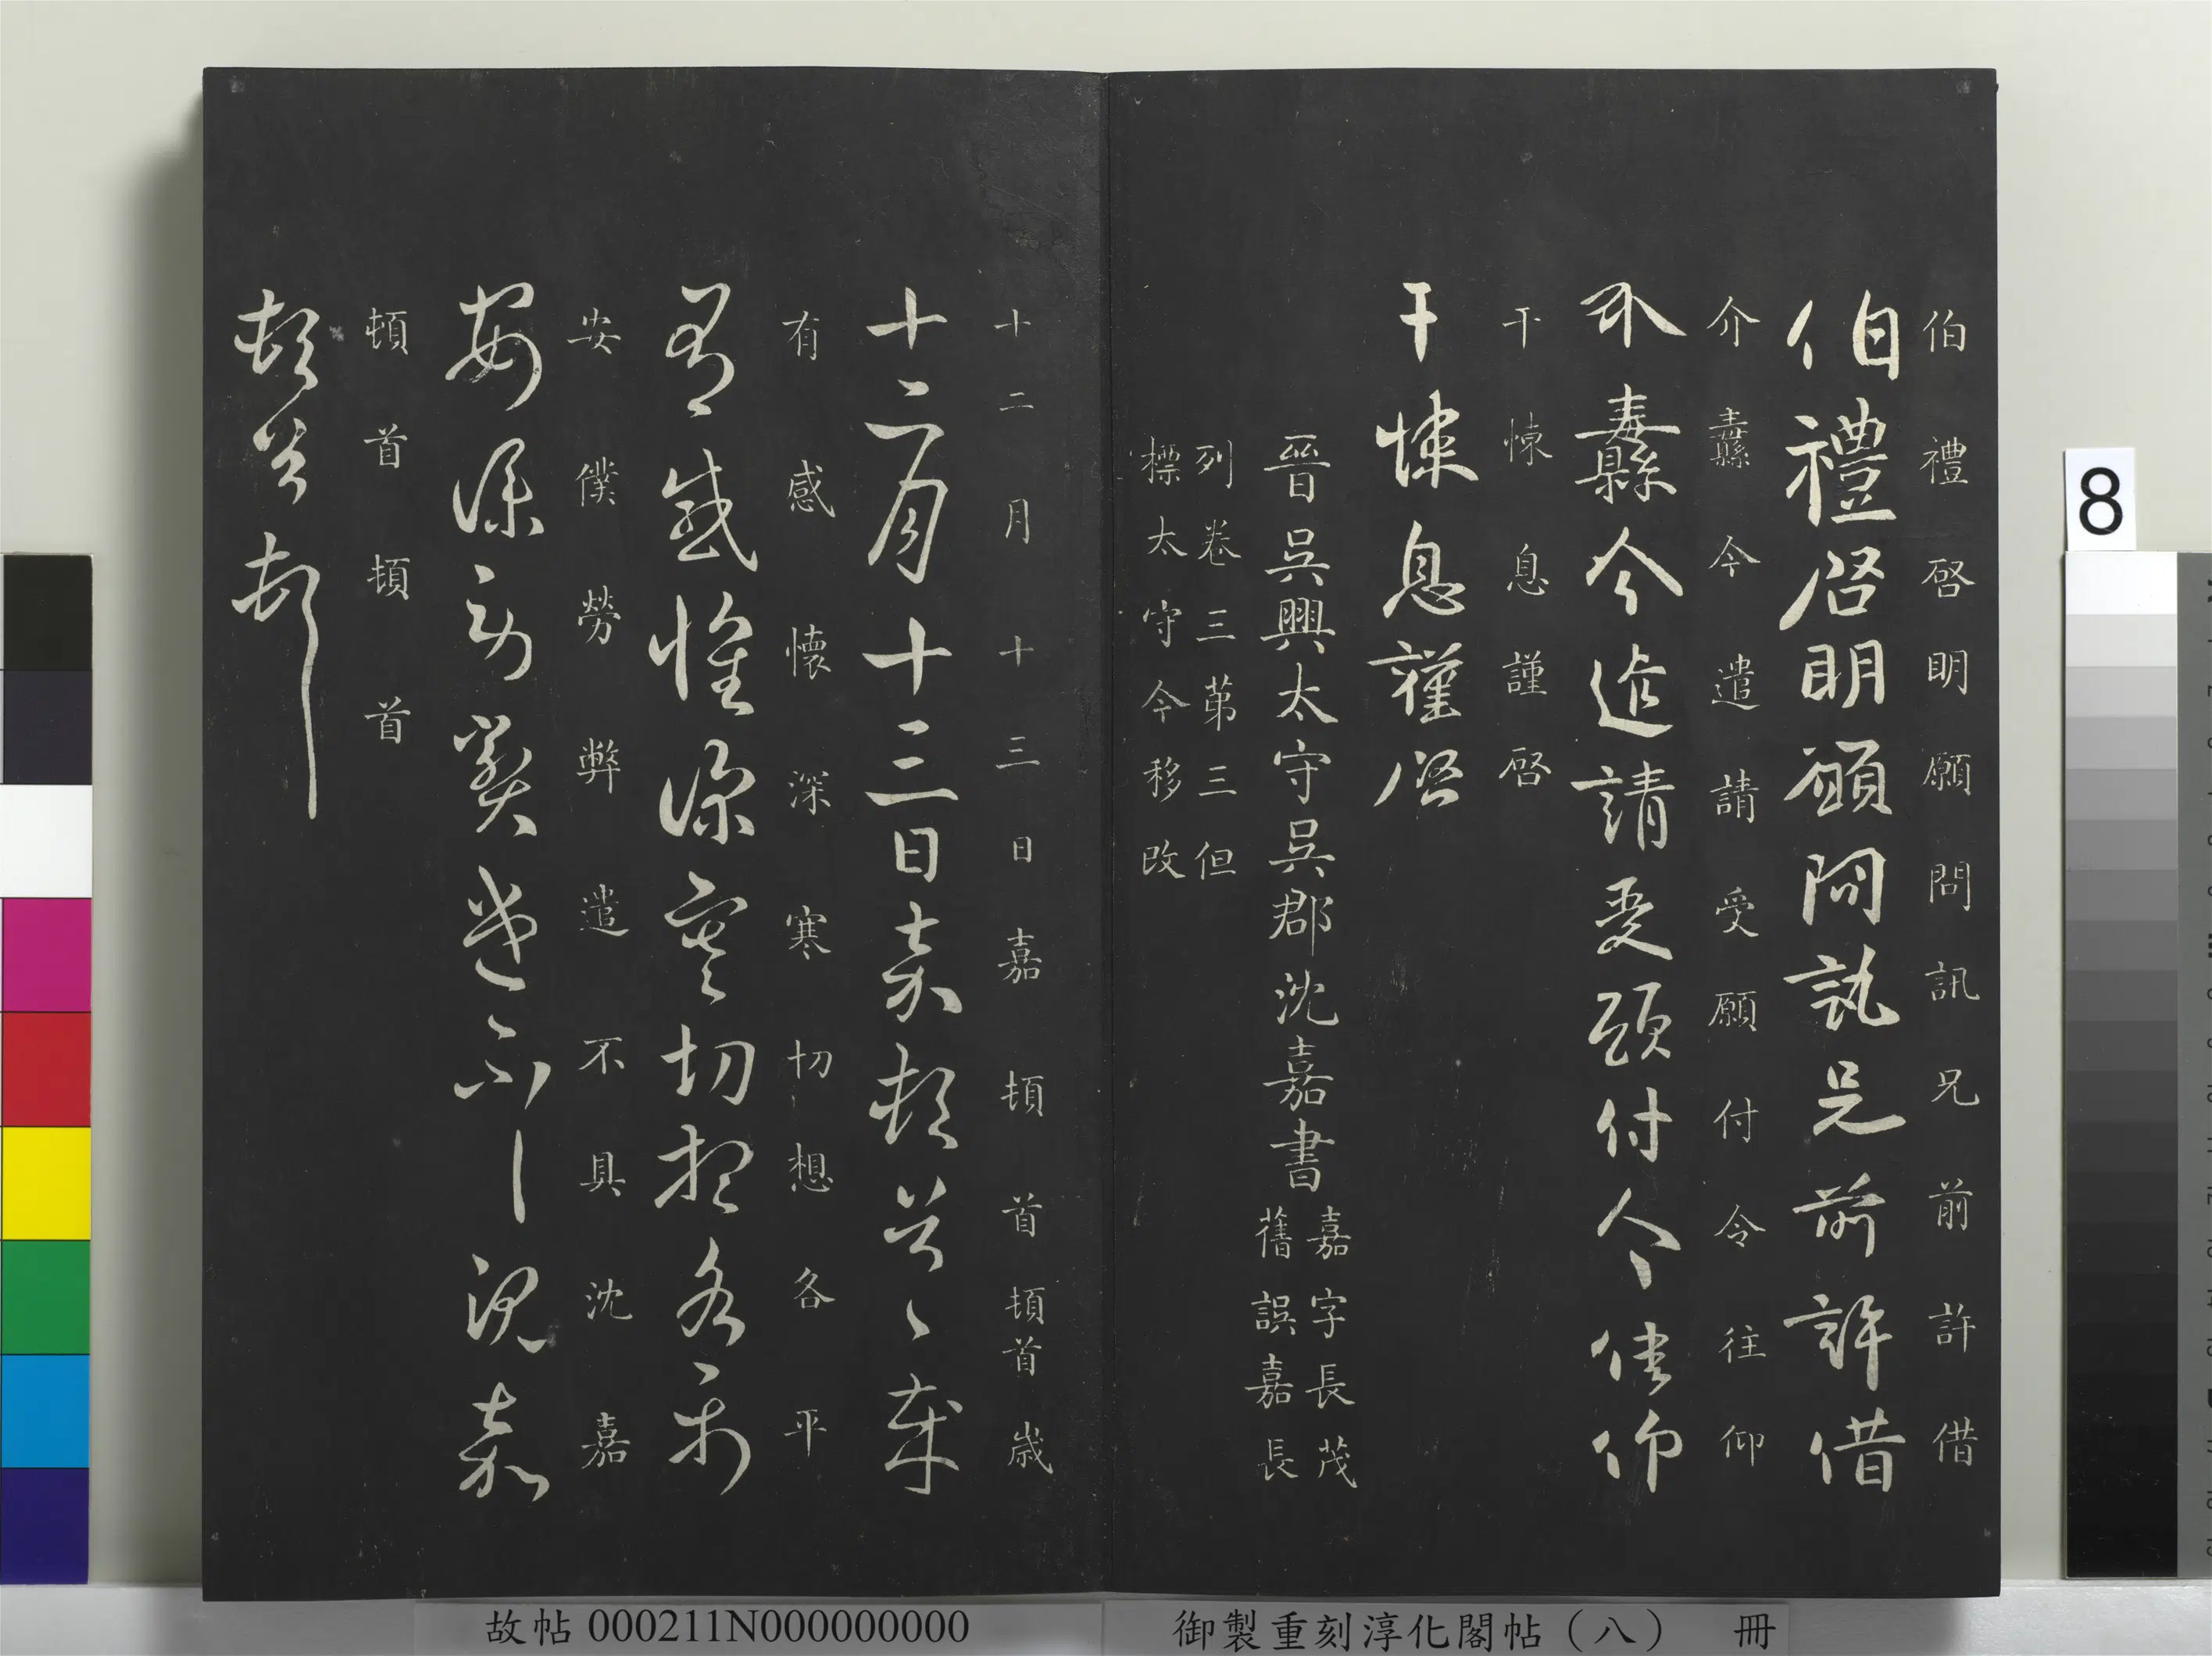 伯禮啓明願問訊兄前許借
伯禮啓明願問訊兄前許借
介纛今遣請受願付令往仰
介纛今遣請受願付令往仰
干悚息謹啓
干悚息謹啓
晉吳興太守吳郡沈嘉書
嘉字長茂
舊誤嘉長
列卷三第三但
標太守今移改
十二月十三日嘉頓首頓首歲
十二月十三日嘉頓首〻歲
有感懷深寒切想各平
有感懷深寒切想各平
安僕勞弊遣不具沈嘉
安僕勞弊遣不具沈嘉
頓首頓首
頓首頓首
故帖 000211N000000000
御製重刻淳化閣帖（八） 冊
8